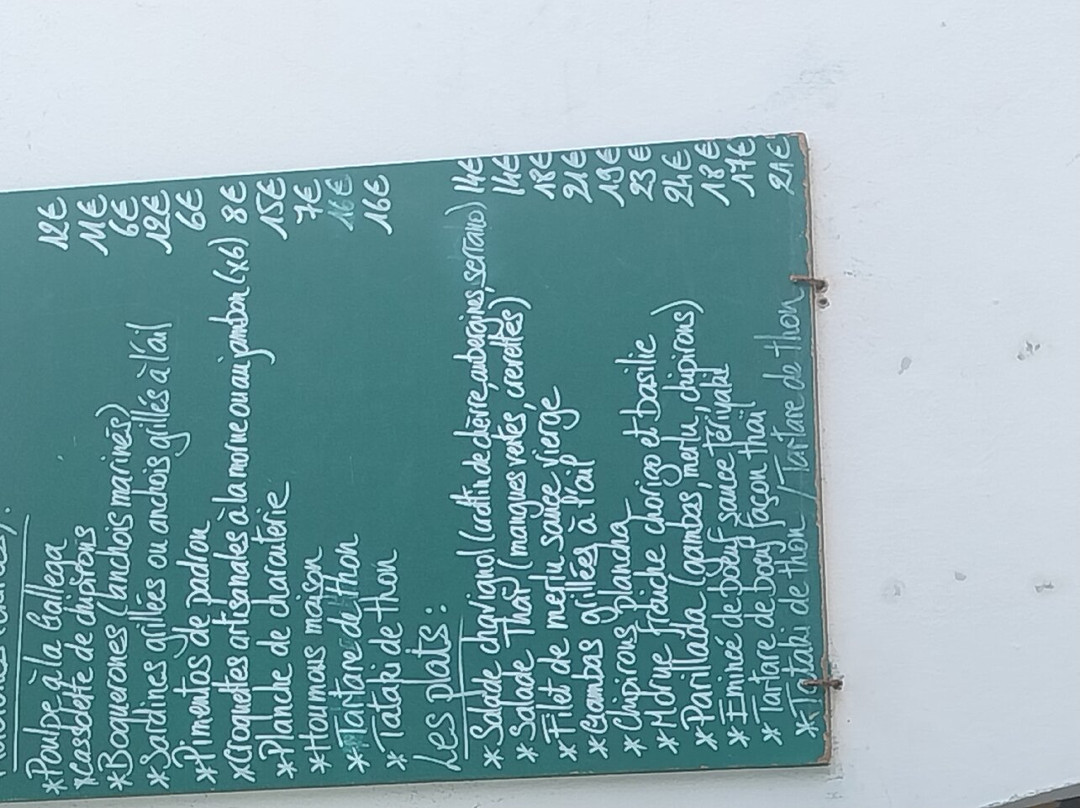 * Poulpe à la Gallega 12€
* Cassolette de chipirons 11€
* Boquerones (anchois marinés) 6€
* Sardines grillées ou anchois grillés à l'ail 12€
* Pimentos de padron 6€
* Croquettes artisanales à la morue ou au jambon (x6) 8€
* Planche de charcuterie 15€
* Houmous maison 7€
* Tartare de thon 16€
* Tataki de thon 16€
Les plats :
* Salade chavignol (crottin de chèvre, aubergines, serrano) 14€
* Salade Thaï (mangues vertes, crevettes) 14€
* Filet de merlu sauce vierge 18€
* Gambas grillées à l'ail 21€
* Chipirons plancha 19€
* Morue fraîche chorizo et basilic 23€
* Parillada (gambas, merlu, chipirons) 24€
* Emincé de bœuf sauce teriyaki 18€
* Tartare de bœuf façon thaï 17€
* Tataki de thon / Tartare de thon 21€